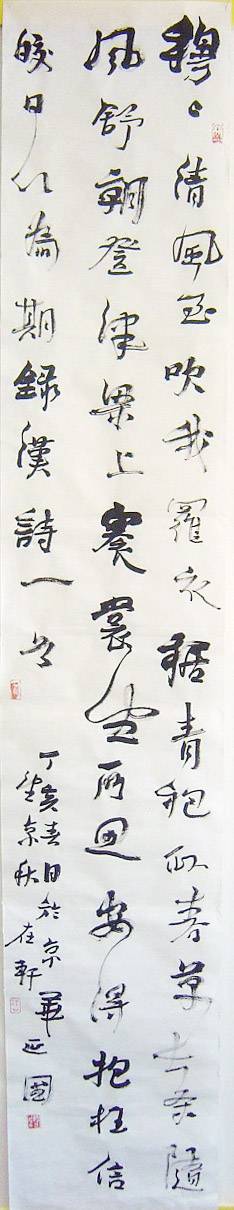 穆〻清風至吹我羅衣裾青袍似春草長条隨
風舒朝登津梁上褰裳望所思安得抱柱信
皎日以為期録漢詩一首
丁亥春日於京華